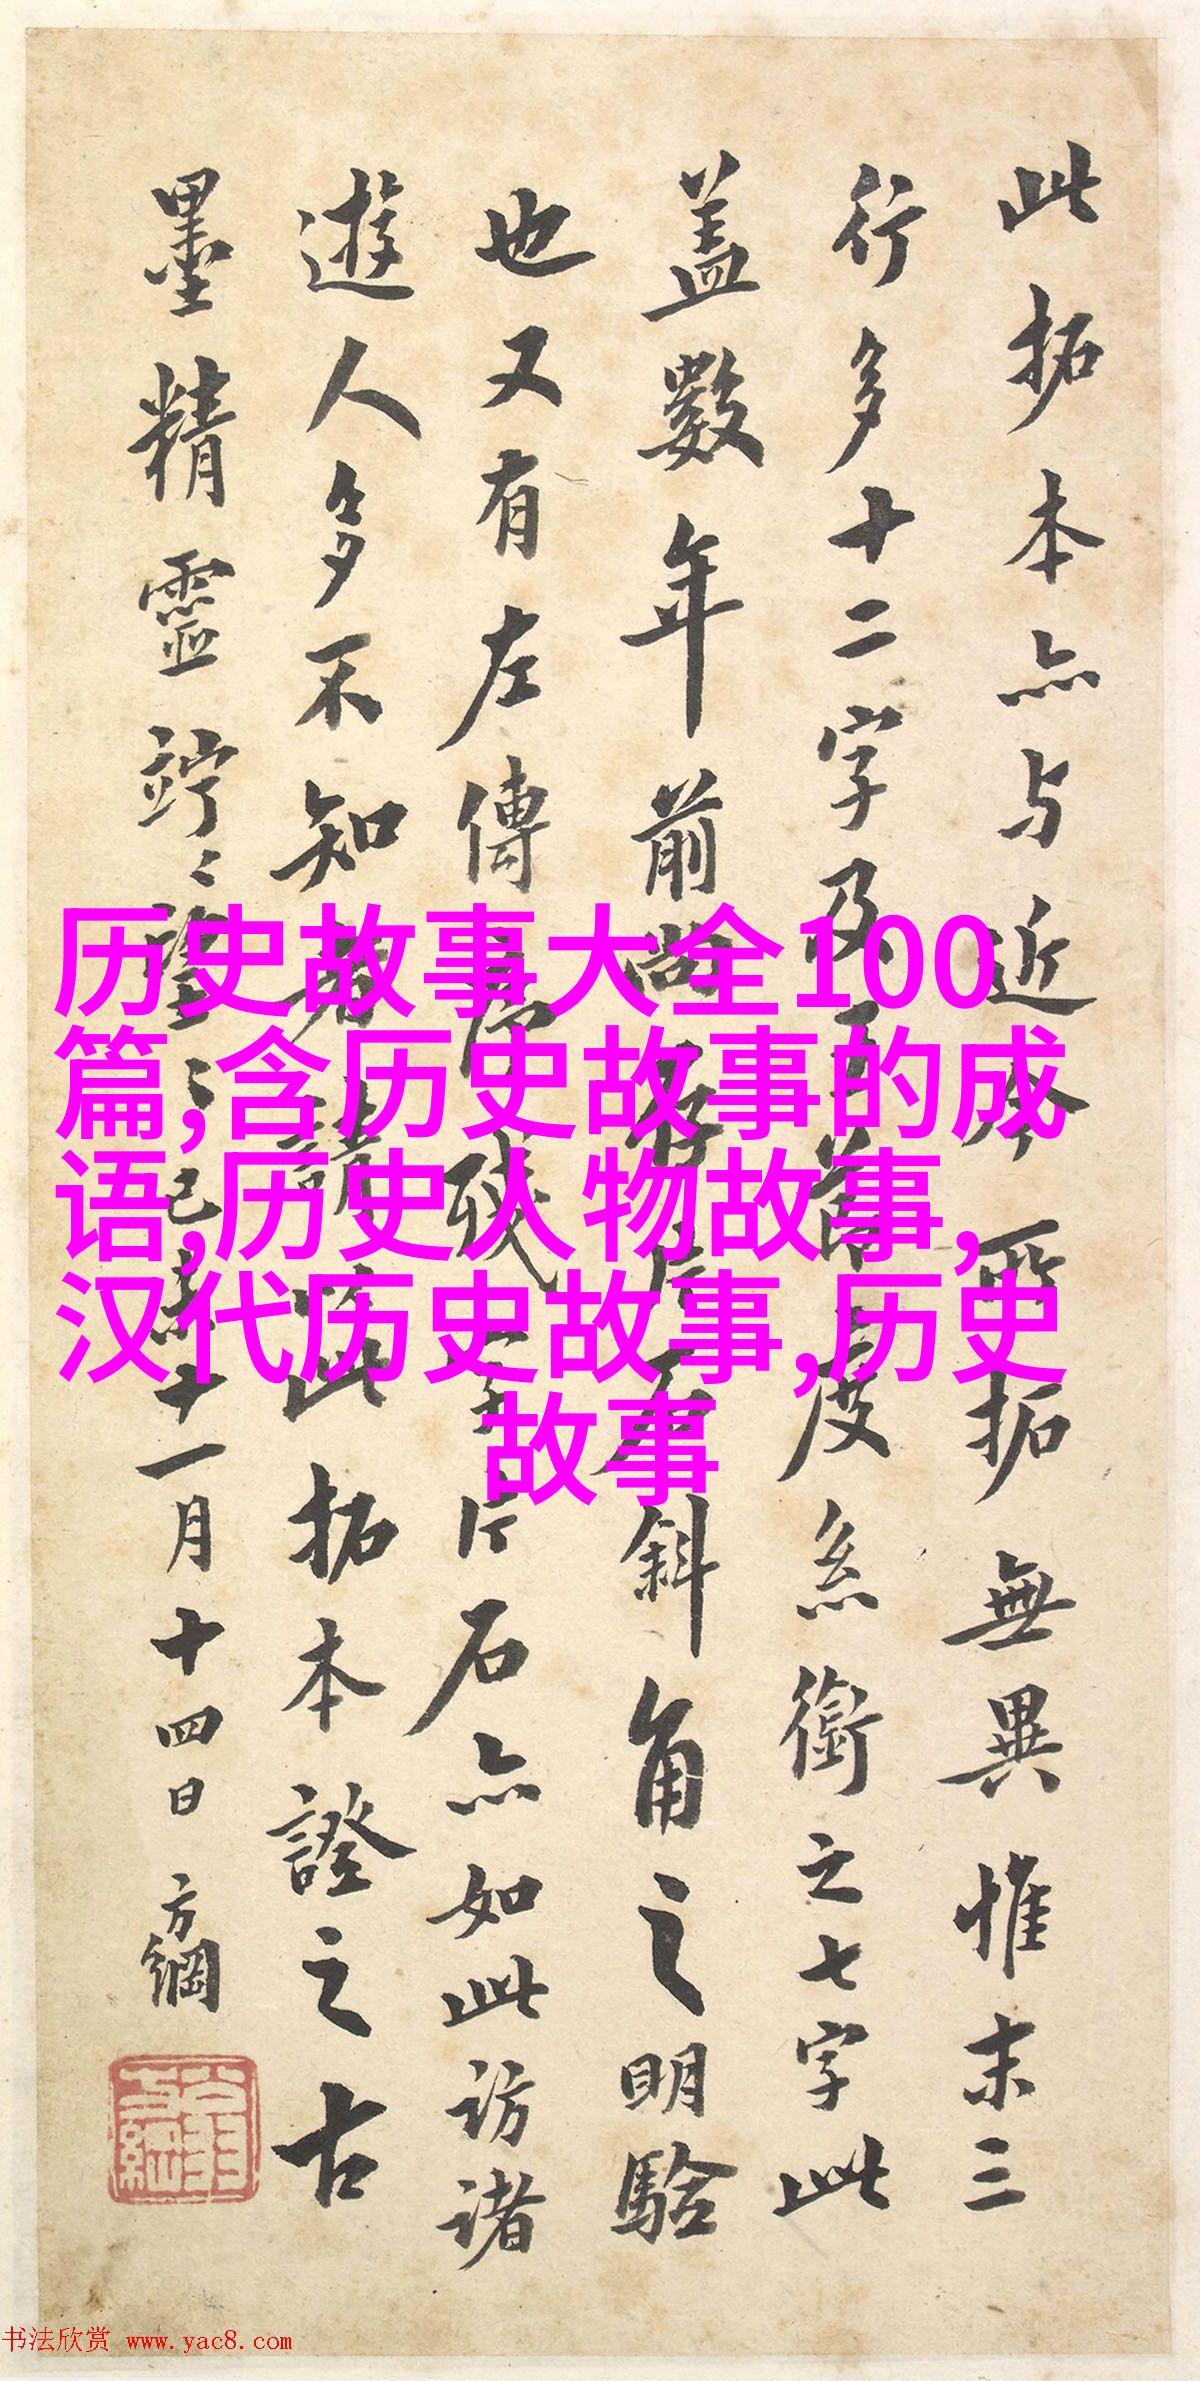 此拓本亦与近今所拓無異惟末三
行多十二字及度系銜之七字此
蓋數年前尚存片石斜角之明驗
也又有左傳殘字片石亦如此訪諸
遊人多不知者請以此拓本證之古
墨精靈竚〻望〻己十一月十四日 方綱
历史故事大全100
篇,含历史故事的成
语,历史人物故事,
汉代历史故事,历史
故事
书法欣赏 www.yac8.com